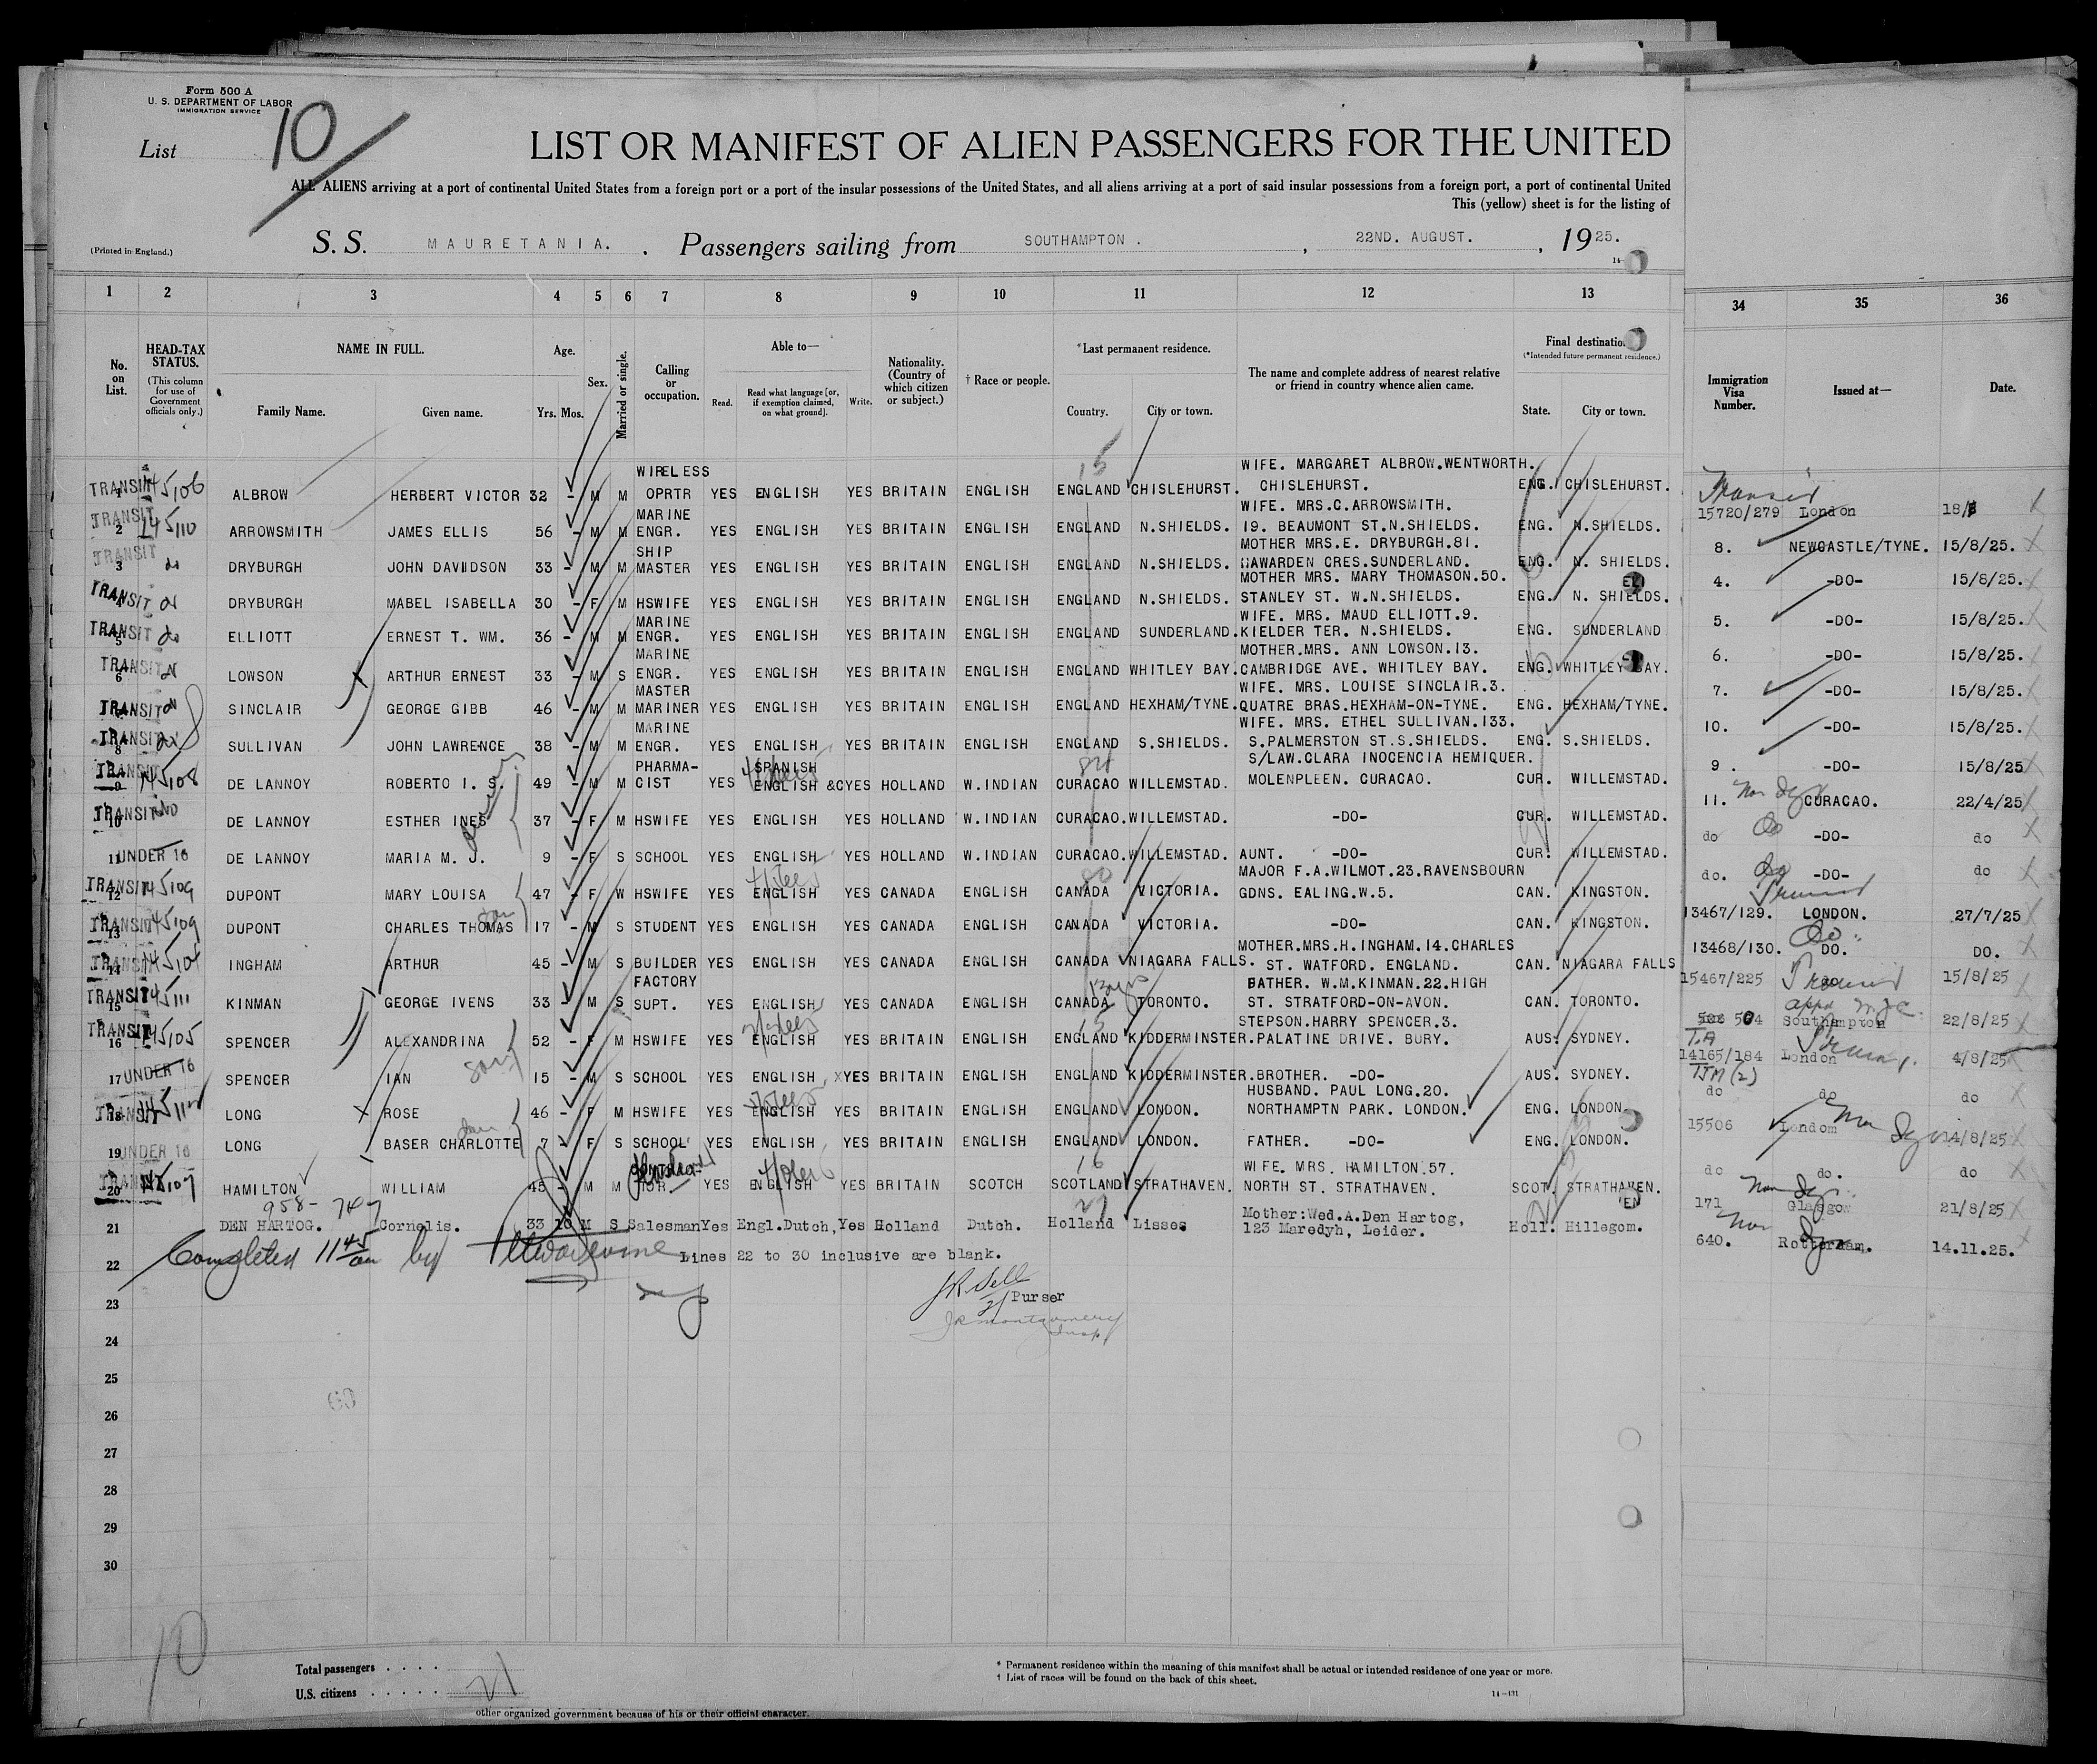 Form 500 A
U. S. DEPARTMENT OF LABOR
IMMIGRATION SERVICE
List 10
LIST OR MANIFEST OF ALIEN PASSENGERS FOR THE UNITED
ALL ALIENS arriving at a port of continental United States from a foreign port or a port of the insular possessions of the United States, and all aliens arriving at a port of said insular possessions from a foreign port, a port of continental United
This (yellow) sheet is for the listing of
(Printed in England.)
S. S. MAURETANIA. . Passengers sailing from SOUTHAMPTON . , 22ND. AUGUST. , 1925.
1 2 3 4 5 6 7 8 9 10 11 12 13 34 35 36
No. on List.
HEAD-TAX STATUS.
(This column for use of Government officials only.)
NAME IN FULL.
Family Name. Given name.
Age.
Yrs. Mos.
Sex.
Married or single.
Calling or occupation.
Able to—
Read. Read what language [or, if exemption claimed, on what ground]. Write.
Nationality. (Country of which citizen or subject.)
† Race or people.
*Last permanent residence.
Country. City or town.
The name and complete address of nearest relative or friend in country whence alien came.
Final destination
(*Intended future permanent residence.)
State. City or town.
Immigration Visa Number.
Issued at—
Date.
TRANSIT 1 145106 ALBROW HERBERT VICTOR 32 - M M WIRELESS OPRTR YES ENGLISH YES BRITAIN ENGLISH ENGLAND CHISLEHURST. WIFE. MARGARET ALBROW.WENTWORTH. CHISLEHURST. ENG. CHISLEHURST. Transit 15720/279 London 18/8
TRANSIT 2 145110 ARROWSMITH JAMES ELLIS 56 - M M MARINE ENGR. YES ENGLISH YES BRITAIN ENGLISH ENGLAND N.SHIELDS. WIFE. MRS.C.ARROWSMITH. 19. BEAUMONT ST.N.SHIELDS. ENG. N.SHIELDS. 8. NEWCASTLE/TYNE. 15/8/25.
TRANSIT 3 do DRYBURGH JOHN DAVIDSON 33 - M M SHIP MASTER YES ENGLISH YES BRITAIN ENGLISH ENGLAND N.SHIELDS. MOTHER MRS.E. DRYBURGH.81. HAWARDEN CRES.SUNDERLAND. ENG. N. SHIELDS. 4. -DO- 15/8/25.
TRANSIT do DRYBURGH MABEL ISABELLA 30 - F M HSWIFE YES ENGLISH YES BRITAIN ENGLISH ENGLAND N.SHIELDS. MOTHER MRS. MARY THOMASON.50. STANLEY ST. W.N.SHIELDS. ENG. N. SHIELDS. 5. -DO- 15/8/25.
TRANSIT 5 do ELLIOTT ERNEST T. WM. 36 - M M MARINE ENGR. YES ENGLISH YES BRITAIN ENGLISH ENGLAND SUNDERLAND. WIFE. MRS. MAUD ELLIOTT.9. KIELDER TER. N.SHIELDS. ENG. SUNDERLAND 6. -DO- 15/8/25.
TRANSIT 6 do LOWSON ARTHUR ERNEST 33 - M S MARINE ENGR. YES ENGLISH YES BRITAIN ENGLISH ENGLAND WHITLEY BAY. MOTHER.MRS. ANN LOWSON.13. CAMBRIDGE AVE. WHITLEY BAY. ENG. WHITLEY BAY. 7. -DO- 15/8/25.
TRANSIT do SINCLAIR GEORGE GIBB 46 - M M MASTER MARINER YES ENGLISH YES BRITAIN ENGLISH ENGLAND HEXHAM/TYNE. WIFE. MRS. LOUISE SINCLAIR.3. QUATRE BRAS.HEXHAM-ON-TYNE. ENG. HEXHAM/TYNE. 10. -DO- 15/8/25.
TRANSIT 8 do SULLIVAN JOHN LAWRENCE 38 - M M MARINE ENGR. YES ENGLISH YES BRITAIN ENGLISH ENGLAND S.SHIELDS. WIFE. MRS. ETHEL SULLIVAN.133. S.PALMERSTON ST.S.SHIELDS. ENG. S.SHIELDS. 9 . -DO- 15/8/25
TRANSIT 9 145108 DE LANNOY ROBERTO I. S. 49 - M M PHARMA-CIST YES SPANISH ENGLISH &C YES HOLLAND W.INDIAN CURACAO WILLEMSTAD. S/LAW.CLARA INOCENCIA HEMIQUER. MOLENPLEEN. CURACAO. CUR. WILLEMSTAD. 11. CURACAO. 22/4/25
TRANSIT 10 DE LANNOY ESTHER INES 37 - F M HSWIFE YES ENGLISH YES HOLLAND W.INDIAN CURACAO. WILLEMSTAD. -DO- CUR. WILLEMSTAD. do -DO- do
11 UNDER 16 DE LANNOY MARIA M. J. 9 - F S SCHOOL YES ENGLISH YES HOLLAND W.INDIAN CURACAO. WILLEMSTAD. AUNT. -DO- CUR. WILLEMSTAD. do. -DO- do
TRANSIT 12 145109 DUPONT MARY LOUISA 47 - F W HSWIFE YES ENGLISH YES CANADA ENGLISH CANADA VICTORIA. MAJOR F.A.WILMOT.23.RAVENSBOURN GDNS. EALING.W.5. CAN. KINGSTON. 13467/129. LONDON. 27/7/25
TRANSIT 13 145109 DUPONT CHARLES THOMAS son 17 - M S STUDENT YES ENGLISH YES CANADA ENGLISH CANADA VICTORIA. -DO- CAN. KINGSTON. 13468/130. DO. DO.
TRANSIT 14 INGHAM ARTHUR 45 - M S BUILDER YES ENGLISH YES CANADA ENGLISH CANADA NIAGARA FALLS. MOTHER.MRS.H.INGHAM.14.CHARLES ST. WATFORD. ENGLAND. CAN. NIAGARA FALLS 15467/225 15/8/25
TRANSIT 15 145111 KINMAN GEORGE IVENS 33 - M S FACTORY SUPT. YES ENGLISH YES CANADA ENGLISH CANADA TORONTO. FATHER. W.M.KINMAN.22.HIGH ST. STRATFORD-ON-AVON. CAN. TORONTO. 504 Southampton 22/8/25
TRANSIT 16 145105 SPENCER ALEXANDRINA 52 - F M HSWIFE YES ENGLISH YES BRITAIN ENGLISH ENGLAND KIDDERMINSTER. STEPSON.HARRY SPENCER.3. PALATINE DRIVE. BURY. AUS. SYDNEY. 14165/184 London 4/8/25
17 UNDER 16 SPENCER IAN son 15 - M S SCHOOL YES ENGLISH YES BRITAIN ENGLISH ENGLAND KIDDERMINSTER. BROTHER. -DO- AUS. SYDNEY. do do do
TRANSIT 18 LONG ROSE 46 - F M HSWIFE YES ENGLISH YES BRITAIN ENGLISH ENGLAND LONDON. HUSBAND. PAUL LONG.20. NORTHAMPTN PARK. LONDON. ENG. LONDON. 15506 London 14/8/25
19 UNDER 16 LONG BASER CHARLOTTE 7 - F S SCHOOL YES ENGLISH YES BRITAIN ENGLISH ENGLAND LONDON. FATHER. -DO- ENG. LONDON. do do. do
TRANSIT 20 145107 HAMILTON WILLIAM 45 - M M CONTRAC-TOR. YES ENGLISH YES BRITAIN SCOTCH SCOTLAND STRATHAVEN. WIFE. MRS. HAMILTON.57. NORTH ST. STRATHAVEN. SCOT. STRATHAVEN. 171 Glasgow 21/8/25
958-747
21 DEN HARTOG. Cornelis. 33 10 M S Salesman Yes Engl.Dutch, Yes Holland Dutch. Holland Lisses Mother:Wed.A.Den Hartog, 123 Maredyh, Leider. Holl. Hillegom. 640. Rotterdam. 14.11.25.
22 Completed 11 45 am by Lines 22 to 30 inclusive are blank.
23 Purser
JR Montgomery Insp.
24
25
26
27
28
29
30
10
Total passengers . . . .
U.S. citizens . . . . . 21
* Permanent residence within the meaning of this manifest shall be actual or intended residence of one year or more.
† List of races will be found on the back of this sheet.
14—431
other organized government because of his or their official character.